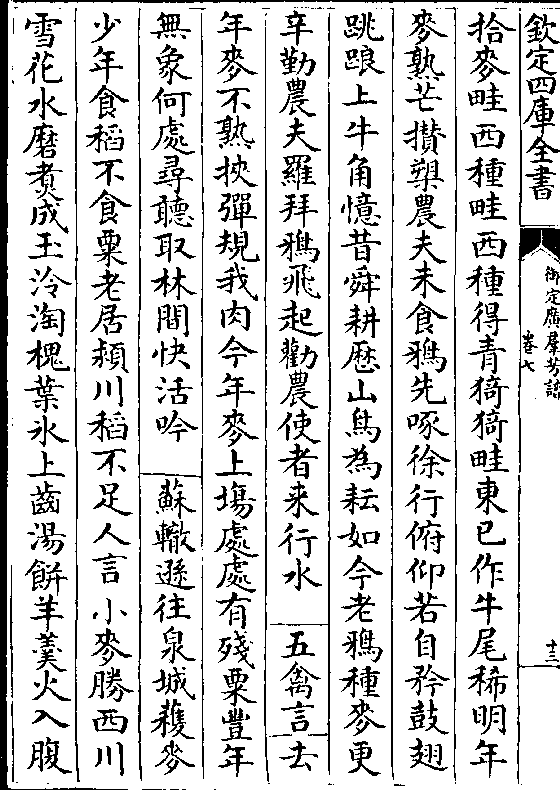 欽定四庫全書
御定廣羣芳譜
卷七
十三
拾麥畦西種畦西種得青猗猗畦東已作牛尾稀明年
麥熟芒攢槊農夫未食鴉先啄徐行俯仰若自矜鼓翅
跳踉上牛角憶昔舜耕厯山鳥為耘如今老鴉種麥更
辛勤農夫羅拜鴉飛起勸農使者来行水 五禽言去
年麥不熟挾彈規我肉今年麥上塲處處有殘粟豐年
無象何處尋聽取林間快活吟 蘇轍遜往泉城穫麥
少年食稻不食粟老居潁川稻不足人言小麥勝西川
雪花水磨煑成玉泠淘槐葉氷上齒湯餅羊羹火入腹